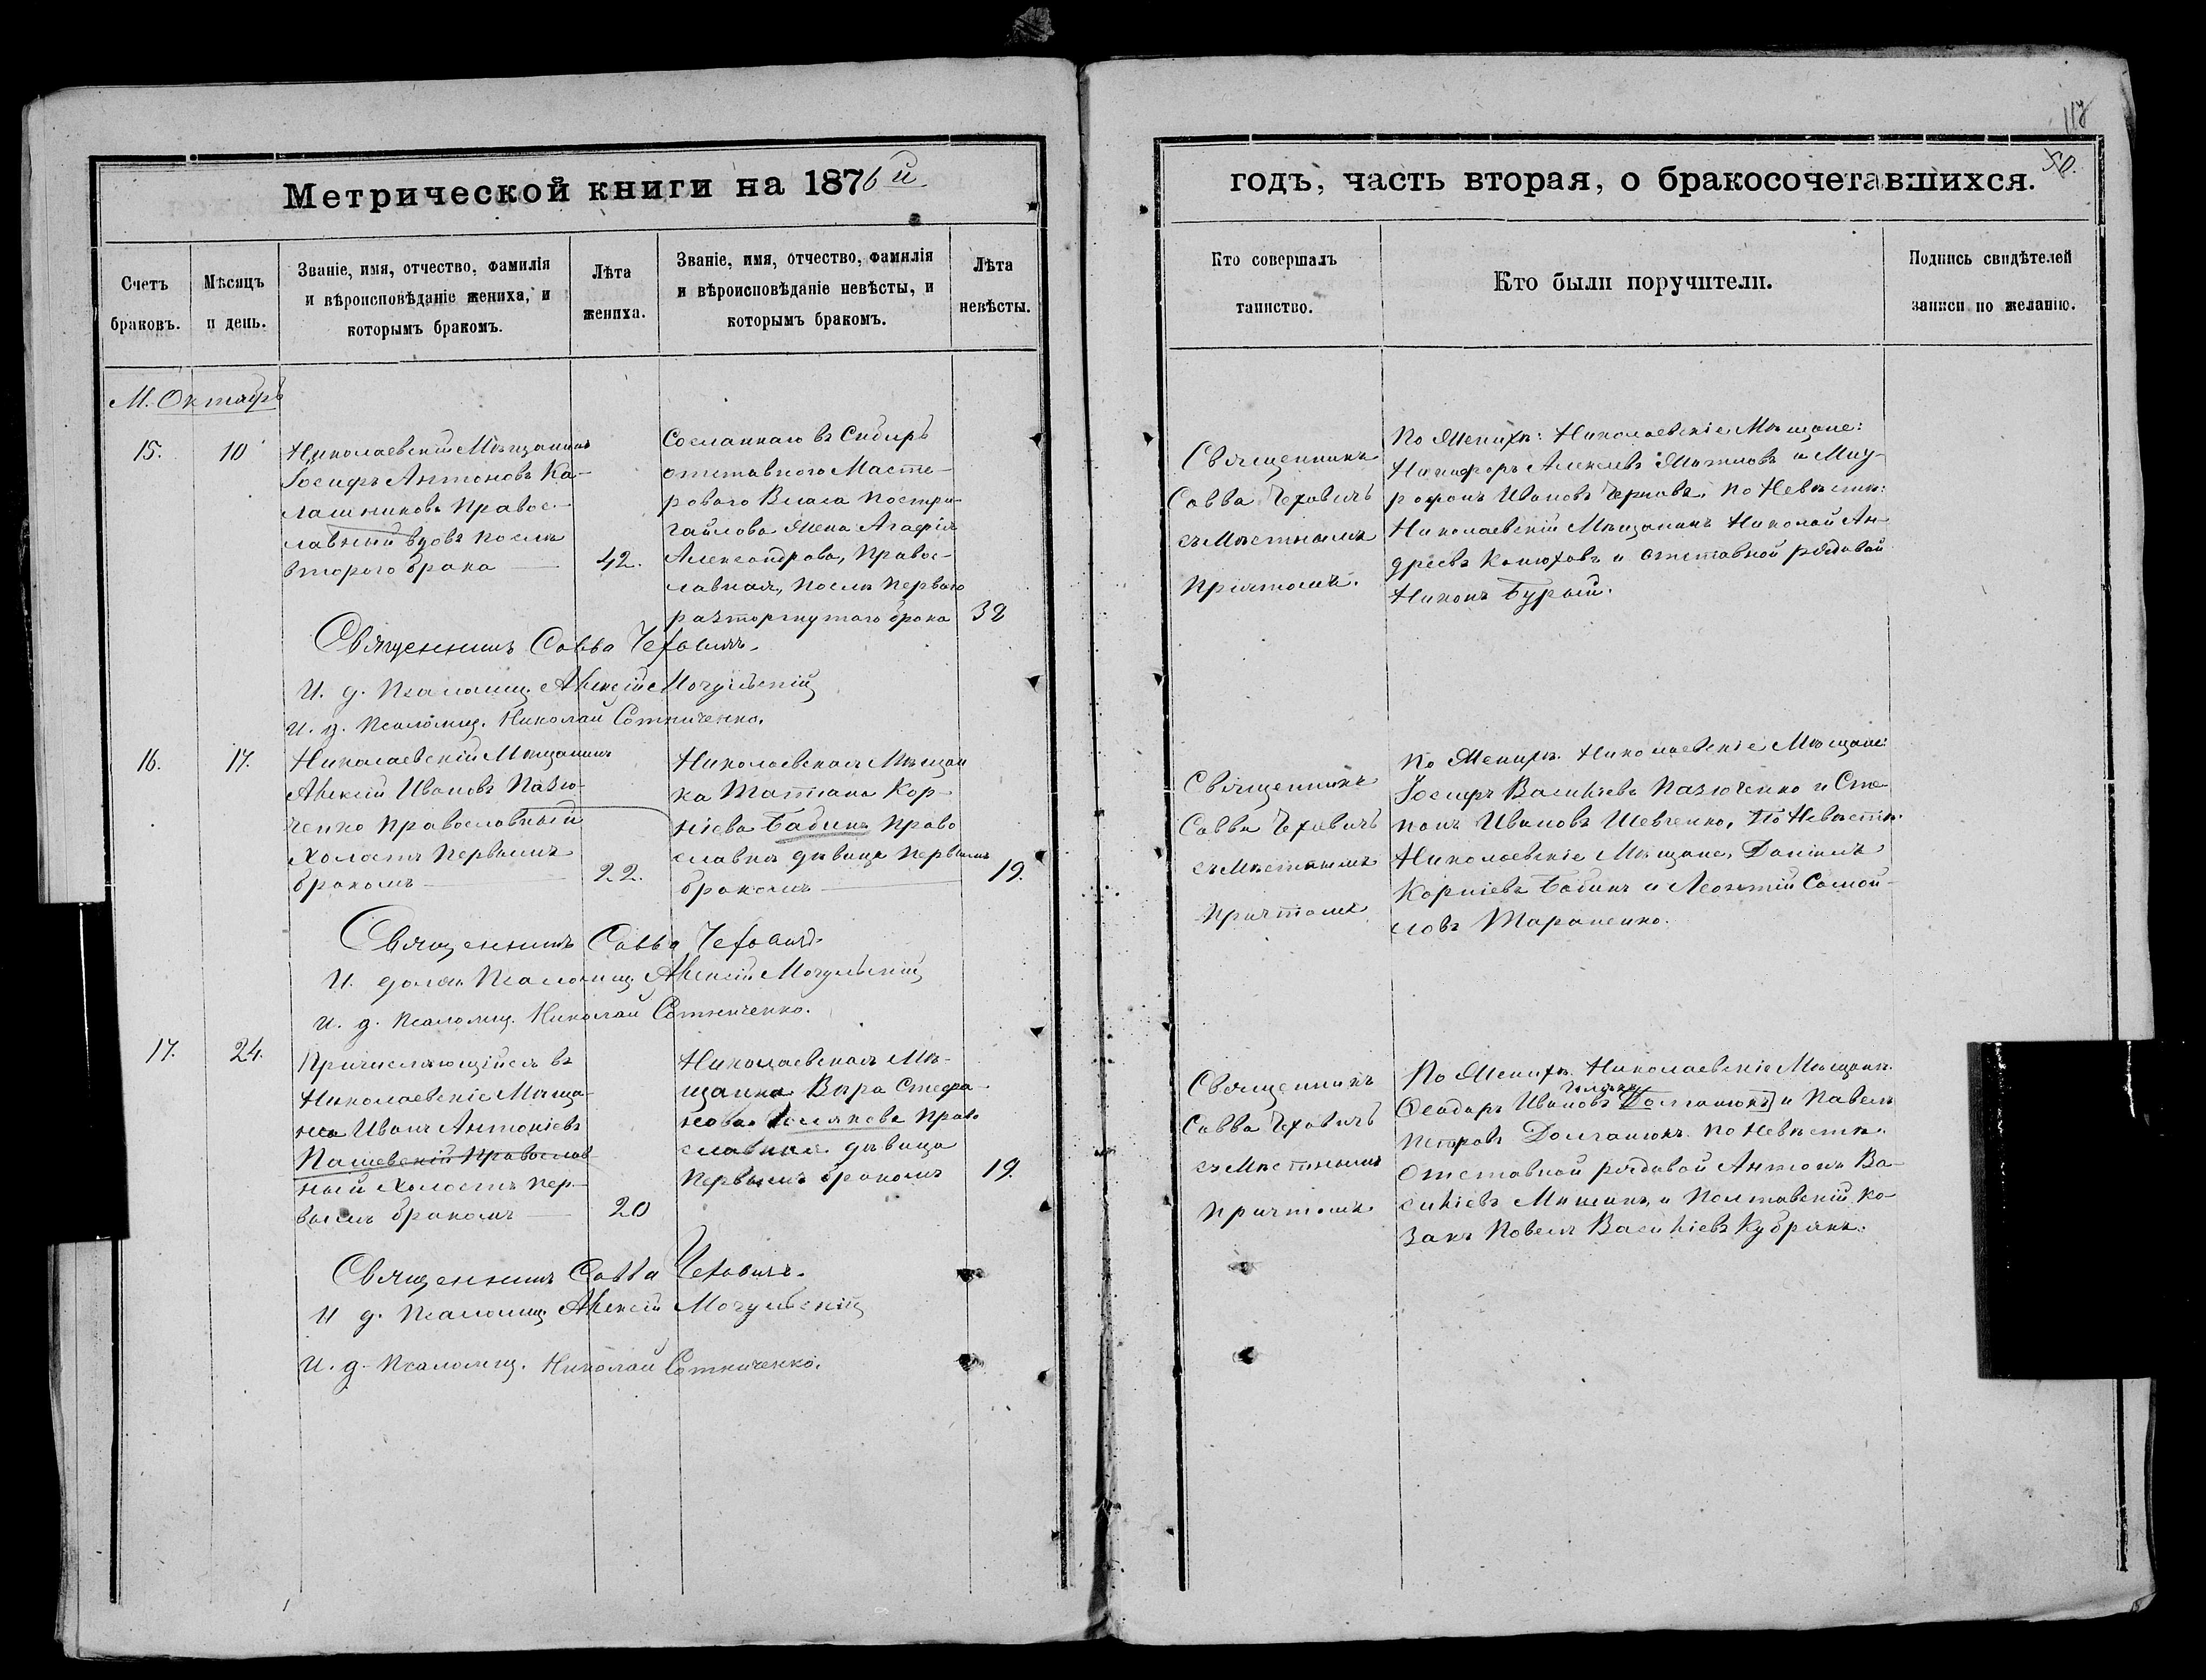 117
50.
Метрической книги на 1876й
годъ, часть вторая, о бракосочетавшихся.
Счетъ
браковъ.
Мѣсяцъ
и день.
Званіе, имя, отчество, фамилія
и вѣроисповѣданіе жениха, и
которымъ бракомъ.
Лѣта
жениха.
Званіе, имя, отчество, фамилія
и вѣроисповѣданіе невѣсты, и
которымъ бракомъ.
Лѣта
невѣсты.
Кто совершалъ
таинство.
Кто были поручители.
Подпись свидѣтелей
записи по желанію.
М. Октябрь
15.
10
Николаевскій Мѣщанинъ
Іосифъ Антоновъ Ка-
лашниковъ Правос-
лавный вдовъ послѣ
втораго брака
42.
Сосланнаго въ Сибирь
отставнаго Масте-
роваго Власа
Жена Агафія
Александрова, Правос-
лавная, послѣ перваго
расторгнутаго брака
32
Священникъ
Савва Чеховичъ
съ Мѣстнымъ
Причтомъ.
По Женихѣ: Николаевскіе Мѣщане:
Никифоръ Алексѣевъ и Мит-
рофанъ Ивановъ Черновъ, по Невѣстѣ:
Николаевскій Мѣщанинъ Николай Ан-
дреевъ Конюховъ и отставной рядовой
Никонъ Бурый.
Священникъ Савва Чеховичъ.
И. д. Псаломщ. Алексій Мочульскій
И. д. Псаломщ. Николай Сотниченко.
16.
17.
Николаевскій Мѣщанинъ
Алексій Ивановъ Пазю-
ченко православный
холостъ первымъ
бракомъ
22.
Николаевская Мѣщан
ка Татіана Кор-
ніева Бабинъ Право
славна дѣвица первымъ
бракомъ
19.
Священникъ
Савва Чеховичъ
съ Мѣстнымъ
Причтомъ
По Женихѣ. Николаевскіе Мѣщане:
Іосифъ Васильевъ Пазюченко и Сте-
панъ Ивановъ Шевченко, По Невѣстѣ.
Николаевскіе Мѣщане, Даніилъ
Корніевъ Бабинъ и Леонтій Самой-
ловъ Тараненко.
Священникъ Савва Чеховичъ.
И. должн. Псаломщ. Алексій Мочульскій
И. д. Псаломщ. Николай Сотниченко.
17.
24.
Причисляющійся въ
Николаевскіе Мѣща-
не Иванъ Антоніевъ
Пашевскій Православ
ный холостъ пер-
вымъ бракомъ
20
Николаевская Мѣ-
щанка Вѣра Стефа-
нова Право
славная дѣвица
первымъ бракомъ
19.
Священникъ
Савва Чеховичъ
съ Мѣстнымъ
Причтомъ.
По Женихѣ. Николаевскіе Мѣщане.
Ѳеодоръ Ивановъ и Павелъ
Петровъ Долганюкъ. по Невѣстѣ.
Отставной рядовой Антонъ Ва-
сильевъ Мишинъ, и Полтавскій ко-
закъ Павелъ Васильевъ Кубракъ.
Священникъ Савва Чеховичъ.
И д. Псаломщ. Алексій Мочульскій
И. д. Псаломщ. Николай Сотниченко.